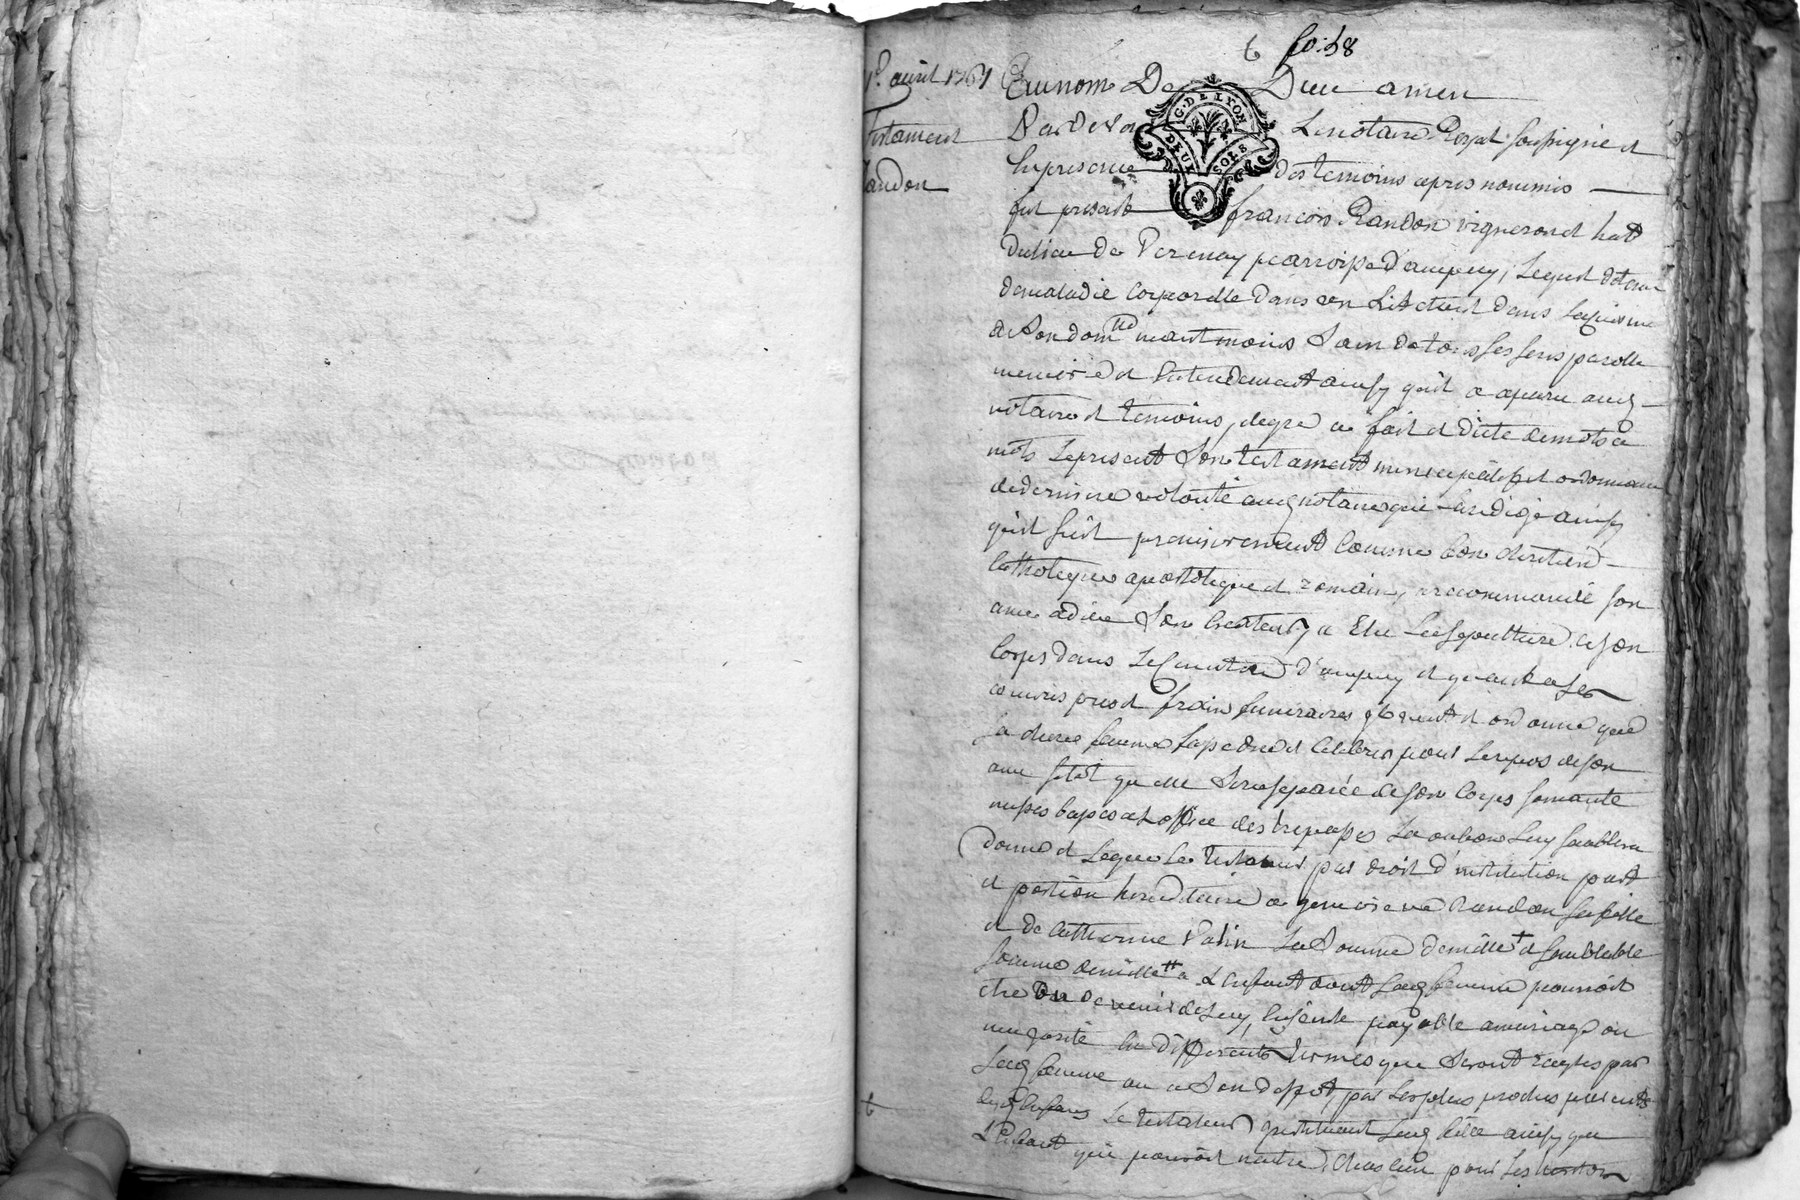 fo: 58
1er. avril 1761
Testament
Randon
Au nom De Dieu amen
Par Devant Le notaire Royal soussigné et
En presence des temoins apres nommés
fut present françois Randon vigneron et hab
Du lieu de Verenay parroisse d'ampuy, Lequel detenu
de maladie corporelle dans un Lit etant dans La cuisine
de son domlle neant moins Sain de tous ses sens parolle
memoire et Entendement ainsy qu'il a aparu aud
notaire et temoins, de gre a fait et dicté de mots a
mots Le present Son testament nuncupatif et ordonnance
de derniere volonté aud notaire qui La redigé ainsy
qu'il suit premierement Comme bon chretien
Catholique apostolique et romain, a recommandé son
ame a dieu Son Createur, a Elu La sepulture de son
Corps dans Le Cimetiere d'ampuy et quant a ses
frais funeraires et ordonne que
sa chere femme fasse dire et Celebrer pour Le repos de son
ame sitot qu'elle Sera separée de son Corps soixante
messes basses a L'office des trepassés La ou bon Luy semblera
Donne et Legue Le testateur par droit d'institution part
et portion hereditaire a genevieve Randon sa fille
et de Catherine La Somme de mille ₶ et semblable
somme de mille ₶ a L'enfant dont Lad femme pourroit
etre de Luy Enceinte payable a mariage ou
majorité En differents termes que Seront reglés par
Lad femme ou a Son deffaut par Les plus proches parents
desd Enfans Le testateur instituant Lad fille ainsy que
L'Enfant qui pourroit naitre, Chacun pour Les